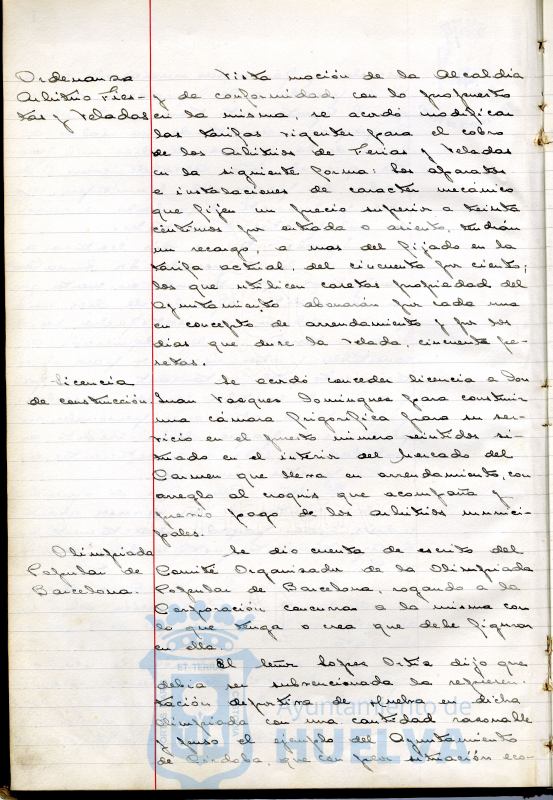 Ordenanza
Arbitrio Fies-
tas y Veladas
Vista moción de la Alcaldía
y de conformidad con lo propuesto
en la misma, se acordó modificar
las tarifas vigentes para el cobro
de los Arbitrios de Ferias y Veladas
en la siguiente forma: Los aparatos
e instalaciones de caracter mecánico
que fijen un precio superior a treinta
céntimos por entrada o asiento, tendrán
un recargo, a mas del fijado en la
tarifa actual, del cincuenta por ciento;
los que utilicen casetas propiedad del
Ayuntamiento abonarán por cada una
en concepto de arrendamiento y por los
dias que dure la Velada, cincuenta pe-
setas.
Licencia
de construcción.
Se acordó conceder licencia a Don
Juan Vazquez Dominguez para construir
una cámara frigorifica para su ser-
vicio en el puesto número veintidos si-
tuado en el interior del Mercado del
Carmen que lleva en arrendamiento, con
arreglo al croquis que acompaña y
previo pago de los arbitrios munici-
pales.
Olimpiada
Popular de
Barcelona.
Se dio cuenta de escrito del
Comité Organizador de la Olimpiada
Popular de Barcelona, rogando a la
Corporación concurra a la misma con
lo que tenga o crea que debe figurar
en ella.
El Señor Lopez Ortiz dijo que
debia ser subvencionada la represen-
tación deportiva de Huelva en dicha
Olimpiada con una cantidad razonable
y puso el ejemplo del Ayuntamiento
de Córdoba, que con peor situación eco-
Ayuntamiento de
HUELVA